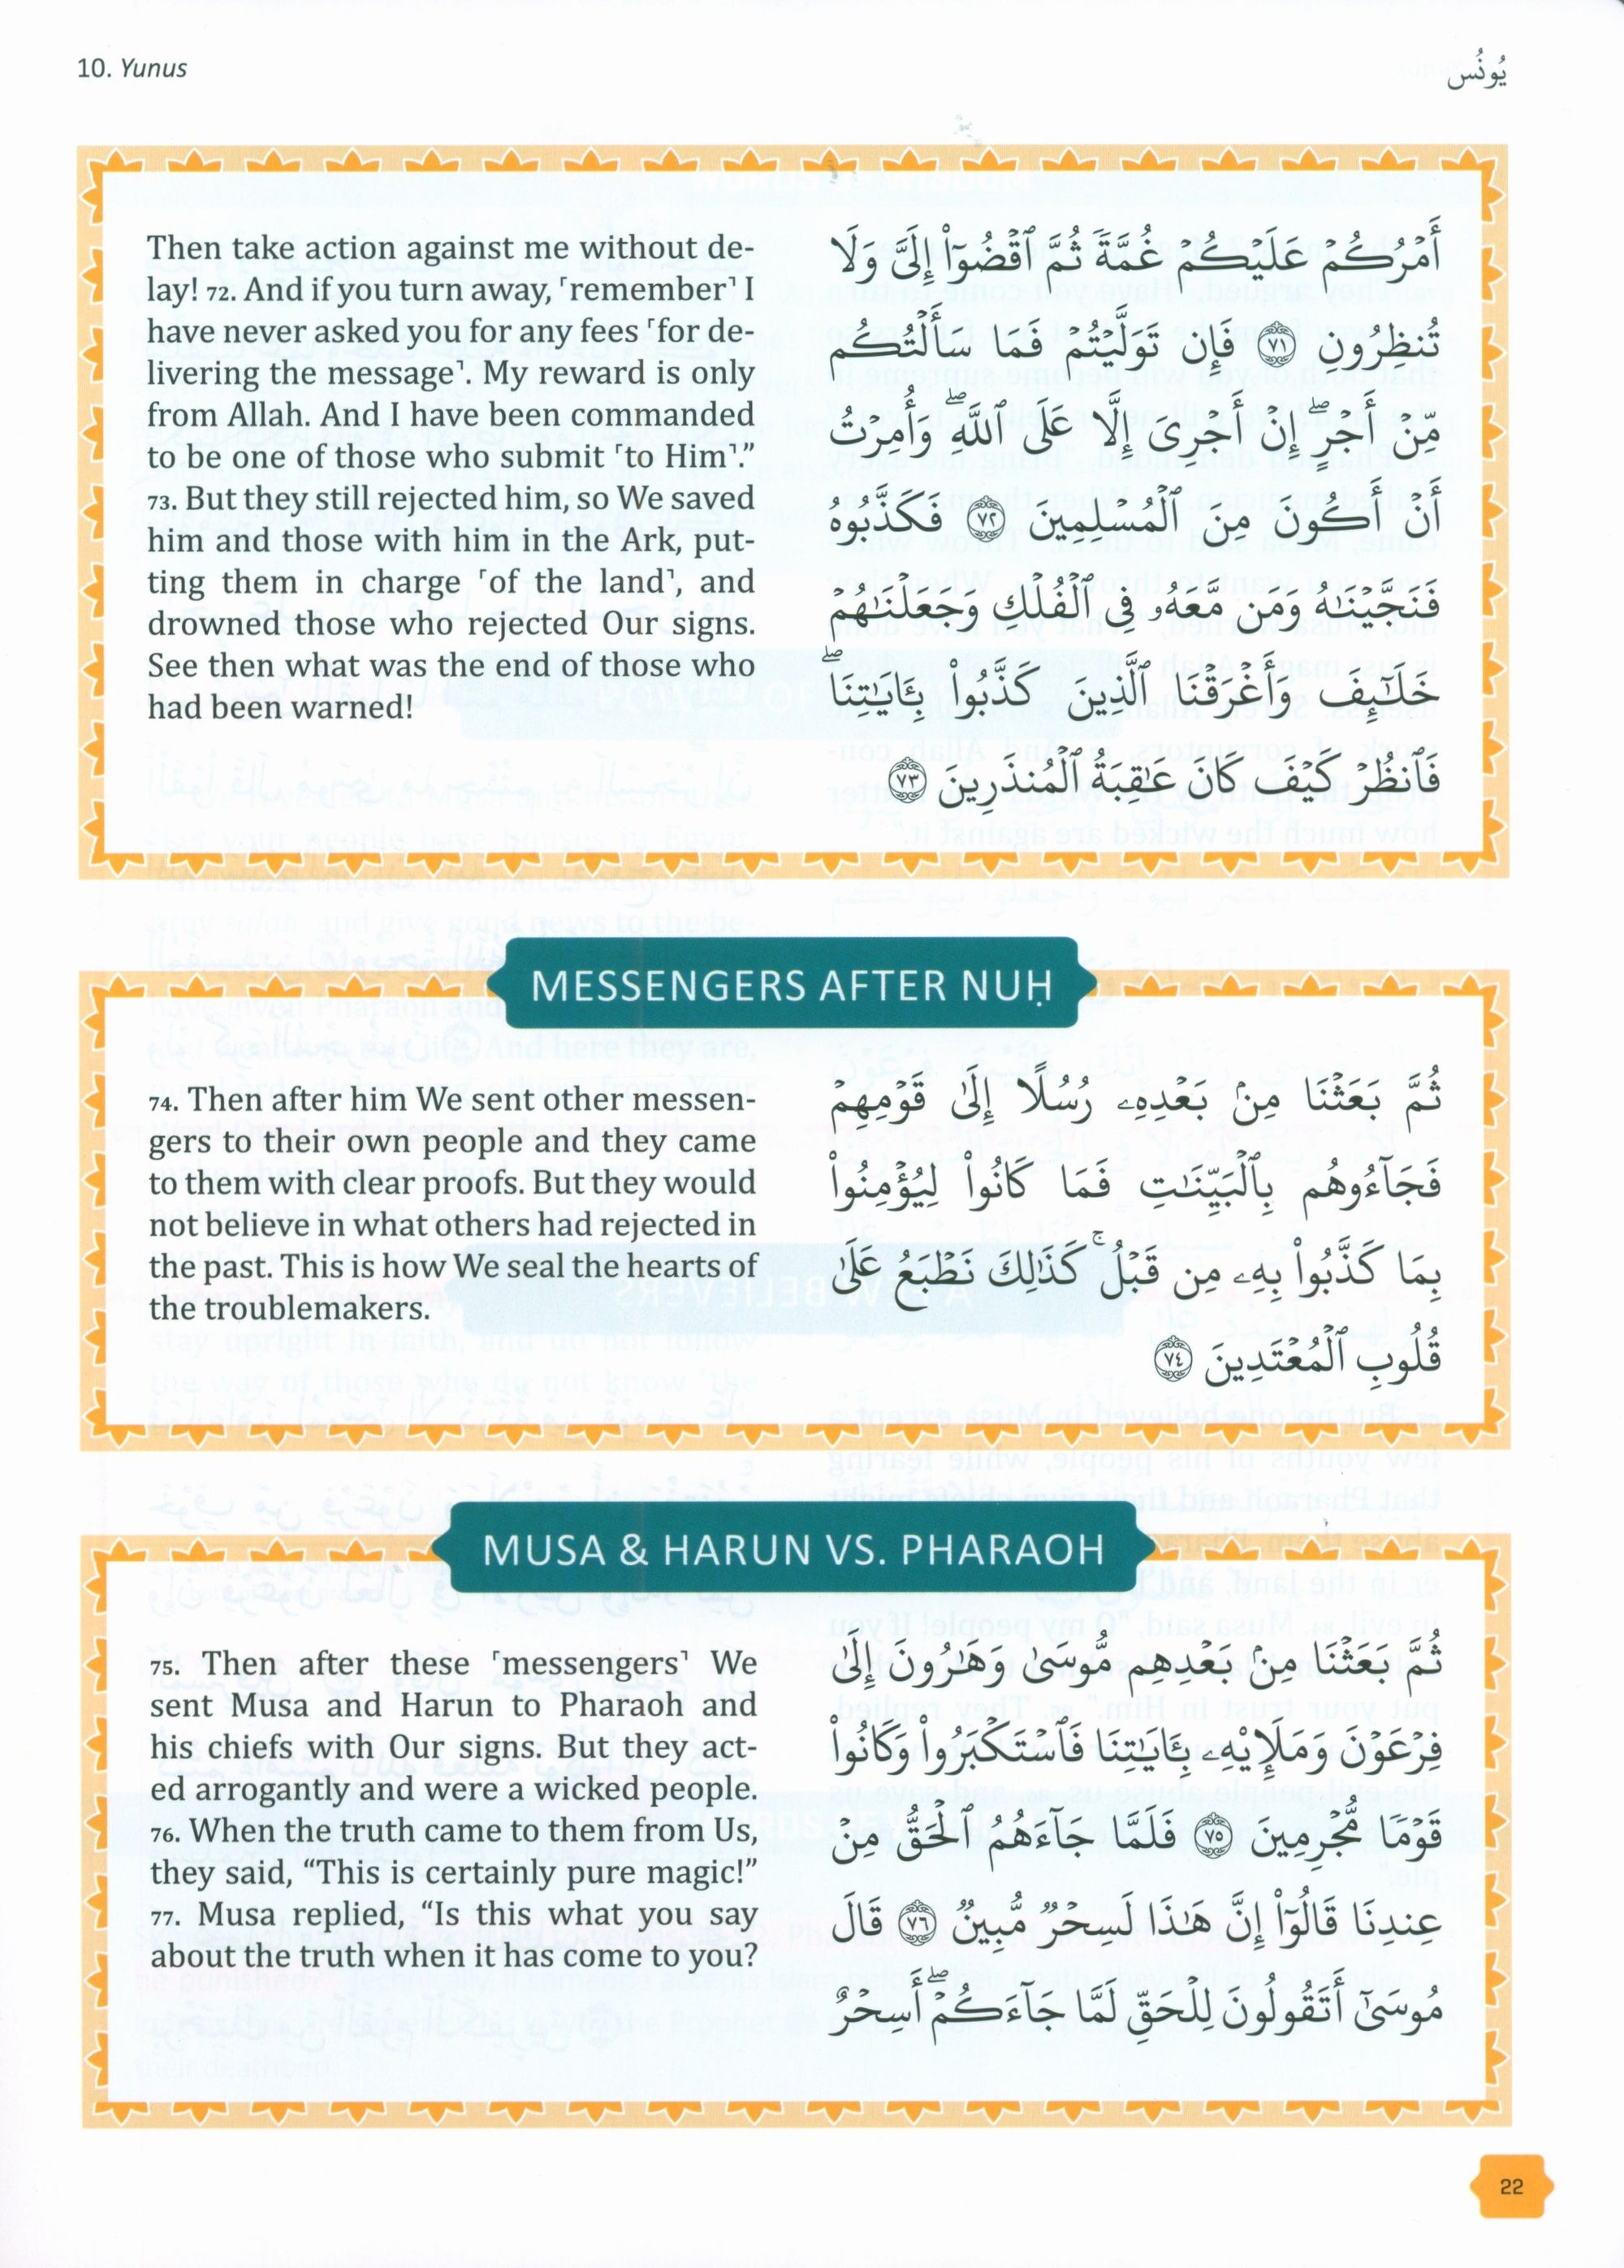 10. Yunus
يُونُس
Then take action against me without de-
lay! 72. And if you turn away, ⸢remember⸣ I
have never asked you for any fees ⸢for de-
livering the message⸣. My reward is only
from Allah. And I have been commanded
to be one of those who submit ⸢to Him⸣.”
73. But they still rejected him, so We saved
him and those with him in the Ark, put-
ting them in charge ⸢of the land⸣, and
drowned those who rejected Our signs.
See then what was the end of those who
had been warned!
أَمۡرُكُمۡ عَلَيۡكُمۡ غُمَّةٗ ثُمَّ ٱقۡضُوٓاْ إِلَيَّ وَلَا
تُنظِرُونِ ٧١ فَإِن تَوَلَّيۡتُمۡ فَمَا سَأَلۡتُكُم
مِّنۡ أَجۡرٍۖ إِنۡ أَجۡرِيَ إِلَّا عَلَى ٱللَّهِۖ وَأُمِرۡتُ
أَنۡ أَكُونَ مِنَ ٱلۡمُسۡلِمِينَ ٧٢ فَكَذَّبُوهُ
فَنَجَّيۡنَٰهُ وَمَن مَّعَهُۥ فِي ٱلۡفُلۡكِ وَجَعَلۡنَٰهُمۡ
خَلَٰٓئِفَ وَأَغۡرَقۡنَا ٱلَّذِينَ كَذَّبُواْ بِـَٔايَٰتِنَاۖ
فَٱنظُرۡ كَيۡفَ كَانَ عَٰقِبَةُ ٱلۡمُنذَرِينَ ٧٣
MESSENGERS AFTER NUḤ
74. Then after him We sent other messen-
gers to their own people and they came
to them with clear proofs. But they would
not believe in what others had rejected in
the past. This is how We seal the hearts of
the troublemakers.
ثُمَّ بَعَثۡنَا مِنۢ بَعۡدِهِۦ رُسُلًا إِلَىٰ قَوۡمِهِمۡ
فَجَآءُوهُم بِٱلۡبَيِّنَٰتِ فَمَا كَانُواْ لِيُؤۡمِنُواْ
بِمَا كَذَّبُواْ بِهِۦ مِن قَبۡلُۚ كَذَٰلِكَ نَطۡبَعُ عَلَىٰ
قُلُوبِ ٱلۡمُعۡتَدِينَ ٧٤
MUSA & HARUN VS. PHARAOH
75. Then after these ⸢messengers⸣ We
sent Musa and Harun to Pharaoh and
his chiefs with Our signs. But they act-
ed arrogantly and were a wicked people.
76. When the truth came to them from Us,
they said, “This is certainly pure magic!”
77. Musa replied, “Is this what you say
about the truth when it has come to you?
ثُمَّ بَعَثۡنَا مِنۢ بَعۡدِهِم مُّوسَىٰ وَهَٰرُونَ إِلَىٰ
فِرۡعَوۡنَ وَمَلَإِيْهِۦ بِـَٔايَٰتِنَا فَٱسۡتَكۡبَرُواْ وَكَانُواْ
قَوۡمٗا مُّجۡرِمِينَ ٧٥ فَلَمَّا جَآءَهُمُ ٱلۡحَقُّ مِنۡ
عِندِنَا قَالُوٓاْ إِنَّ هَٰذَا لَسِحۡرٞ مُّبِينٞ ٧٦ قَالَ
مُوسَىٰٓ أَتَقُولُونَ لِلۡحَقِّ لَمَّا جَآءَكُمۡۖ أَسِحۡرٌ
22